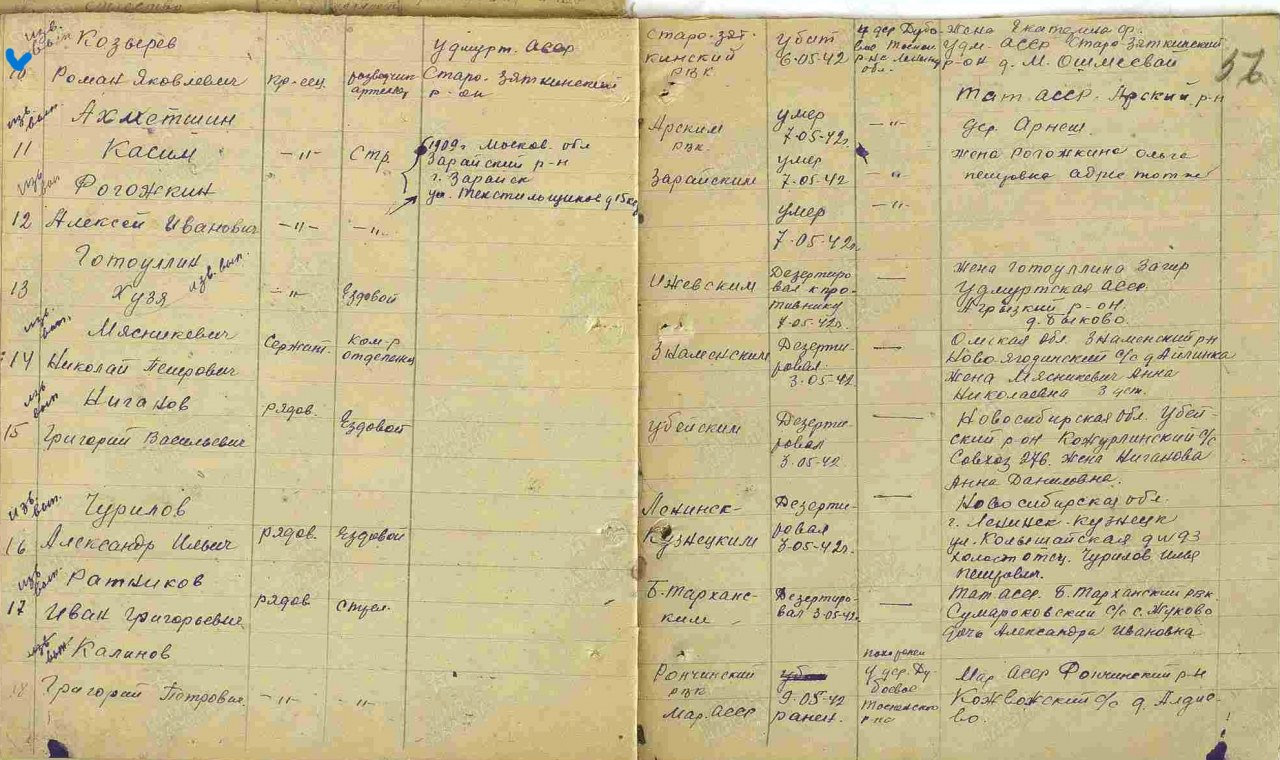 изв. вып.
Козырев
10 Роман Яковлевич
кр-еец
разведчик
артеллер.
Удмурт. АССР
Старо-Зяткинский
р-он
Старо-Зят-
кинский
РВК
убит
6.05.42
у дер Дубо-
вое Тоснен.
р-на Ленинг.
обл.
Жена Екатерина Ф.
Удм. АССР Старо-Зяткинский
р-он д. М. Ошмесвай
56
изв. вып.
Ахметшин
11 Касим
—"—
Стр.
Арским
РВК.
умер
7.05.42г.
—"—
Тат. АССР. Арский р-н
дер. Арнеш.
изв. вып
Рогожкин
12 Алексей Иванович
—"—
—"—
1909г Москов. обл
Зарайский р-н
г. Зарайск
ул. Текстильщиков д 15 кв
Зарайским
умер
7.05.42
—"—
жена Рогожкина Ольга
Петровна адрес тот же
умер
7.05.42г.
—"—
Готоуллин изв. вып.
13 Хузя
—"—
Ездовой
Ижевским
Дезертиро
вал к про-
тивнику
7.05.42г.
—
жена Готоуллина Загир
Удмуртская АССР.
Агрызкий р-он.
д. Быково.
изв. вып.
Мясникевич
14 Николай Петрович
Сержант.
ком-р
отделения
Знаменским
Дезерти-
ровал.
3.05.42
—
Омская обл. Знаменский р-н
Ново Ягодинский с/с д Айлинка
жена Мясникевич Анна
Николаевна 3 дет.
изв. вып
Ниганов
15 Григорий Васильевич
рядов.
Ездовой
Убейским
Дезерти-
ровал
3.05.42.
—
Новосибирская обл. Убей-
ский р-он Кожурлинский с/с
Совхоз 276. Жена Ниганова
Анна Даниловна.
изв. вып.
Чурилов
16 Александр Ильич
рядов.
Ездовой
Ленинск-
Кузнецким
Дезерти-
ровал
3.05.42г.
—
Новосибирская обл.
г. Ленинск-Кузнецк
ул. Колышайская д №93
холост отец. Чурилов Илья
Петрович.
изв. вып.
Ратников
17 Иван Григорьевич
рядов
стрел.
Б-Тархан-
ским
Дезертиро-
вал 3.05.42г.
—
Тат АССР. Б. Тарханский рвк.
Сумароковский с/с с. Жуково
дочь Александра Ивановна
изв. вып.
Калинов
18 Григорий Петрович
—"—
—"—
Рончинский
РВК
Мар. АССР
убит
9.05.42
ранен.
похоронен
у дер. Ду
бовое
Тосненского
р-на
Мар АССР Рончинский р-н
Кожвожский с/с д. Алдио-
во.